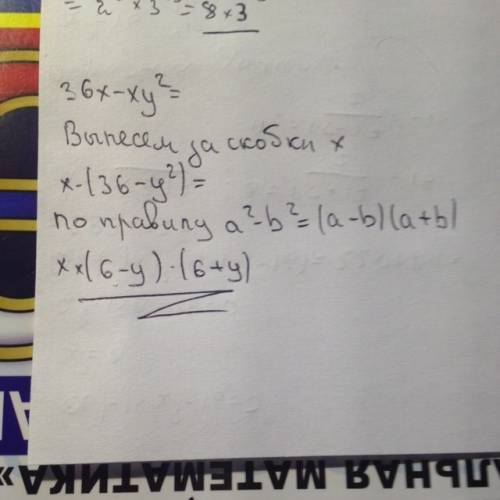 = 2 × 3 = 8 × 3
36x-xy²=
Вынесем за скобки x
x·(36-y²)=
по правилу a²-b²=(a-b)(a+b)
x×(6-y)·(6+y)
АЛЬНАЯ МАТЕМАТИКА»